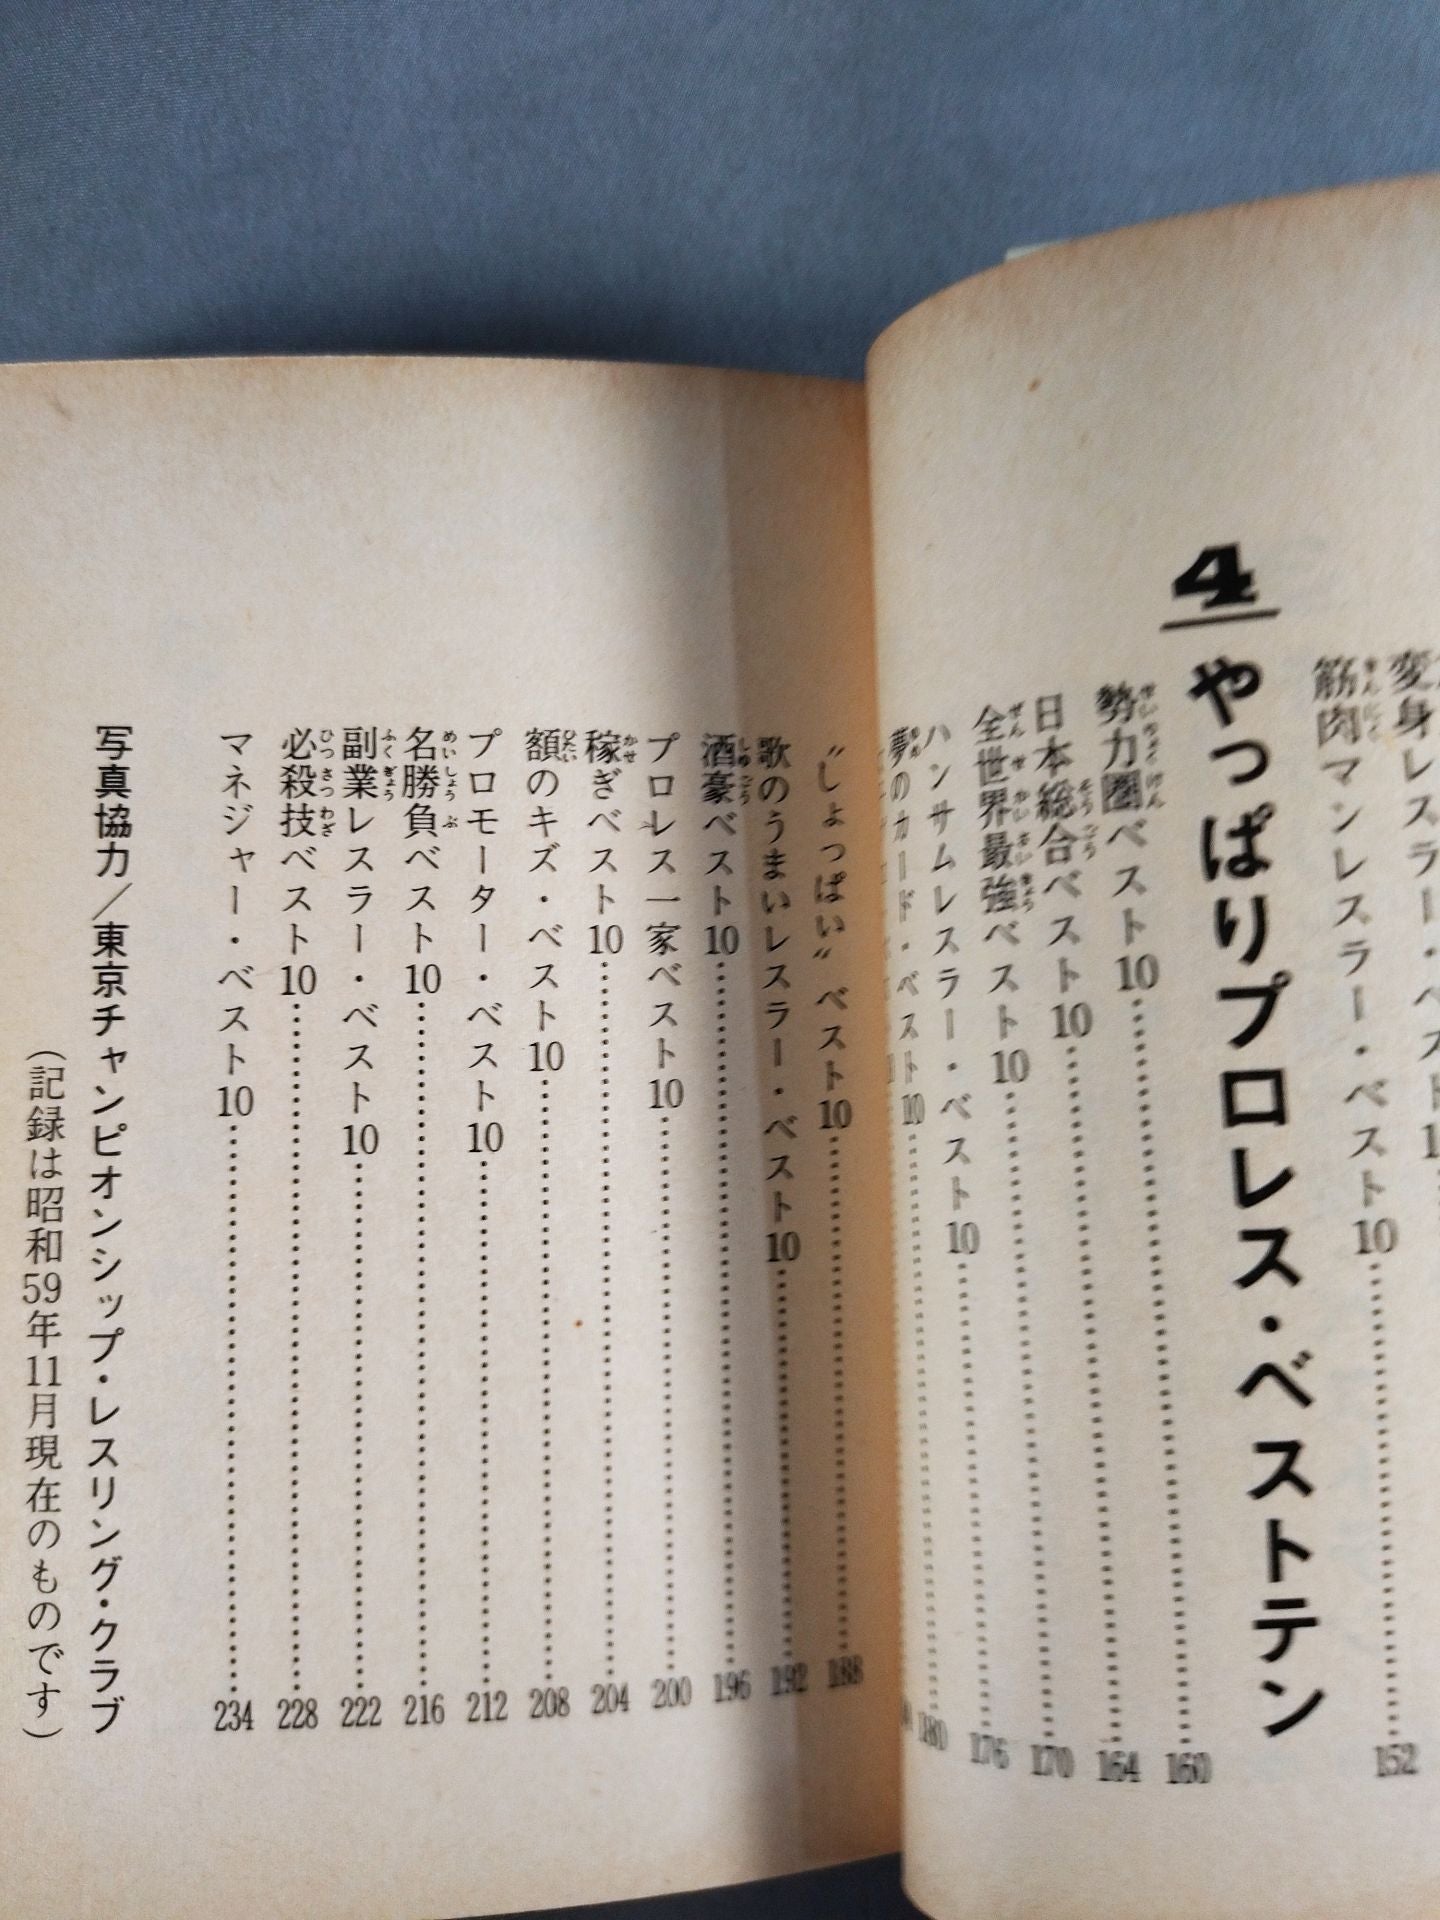 変身レスラー・ベスト1
筋肉マンレスラー・ベスト10 152
4 やっぱりプロレス・ベストテン
勢力圏ベスト10 160
日本総合ベスト10 164
全世界最強ベスト10 170
ハンサムレスラー・ベスト10 176
夢のカード・ベスト10 180
"しょっぱい"ベスト10 188
歌のうまいレスラー・ベスト10 192
酒豪ベスト10 196
プロレス一家ベスト10 200
稼ぎベスト10 204
額のキズ・ベスト10 208
プロモーター・ベスト10 212
名勝負ベスト10 216
副業レスラー・ベスト10 222
必殺技ベスト10 228
マネジャー・ベスト10 234
写真協力/東京チャンピオンシップ・レスリング・クラブ
(記録は昭和59年11月現在のものです)